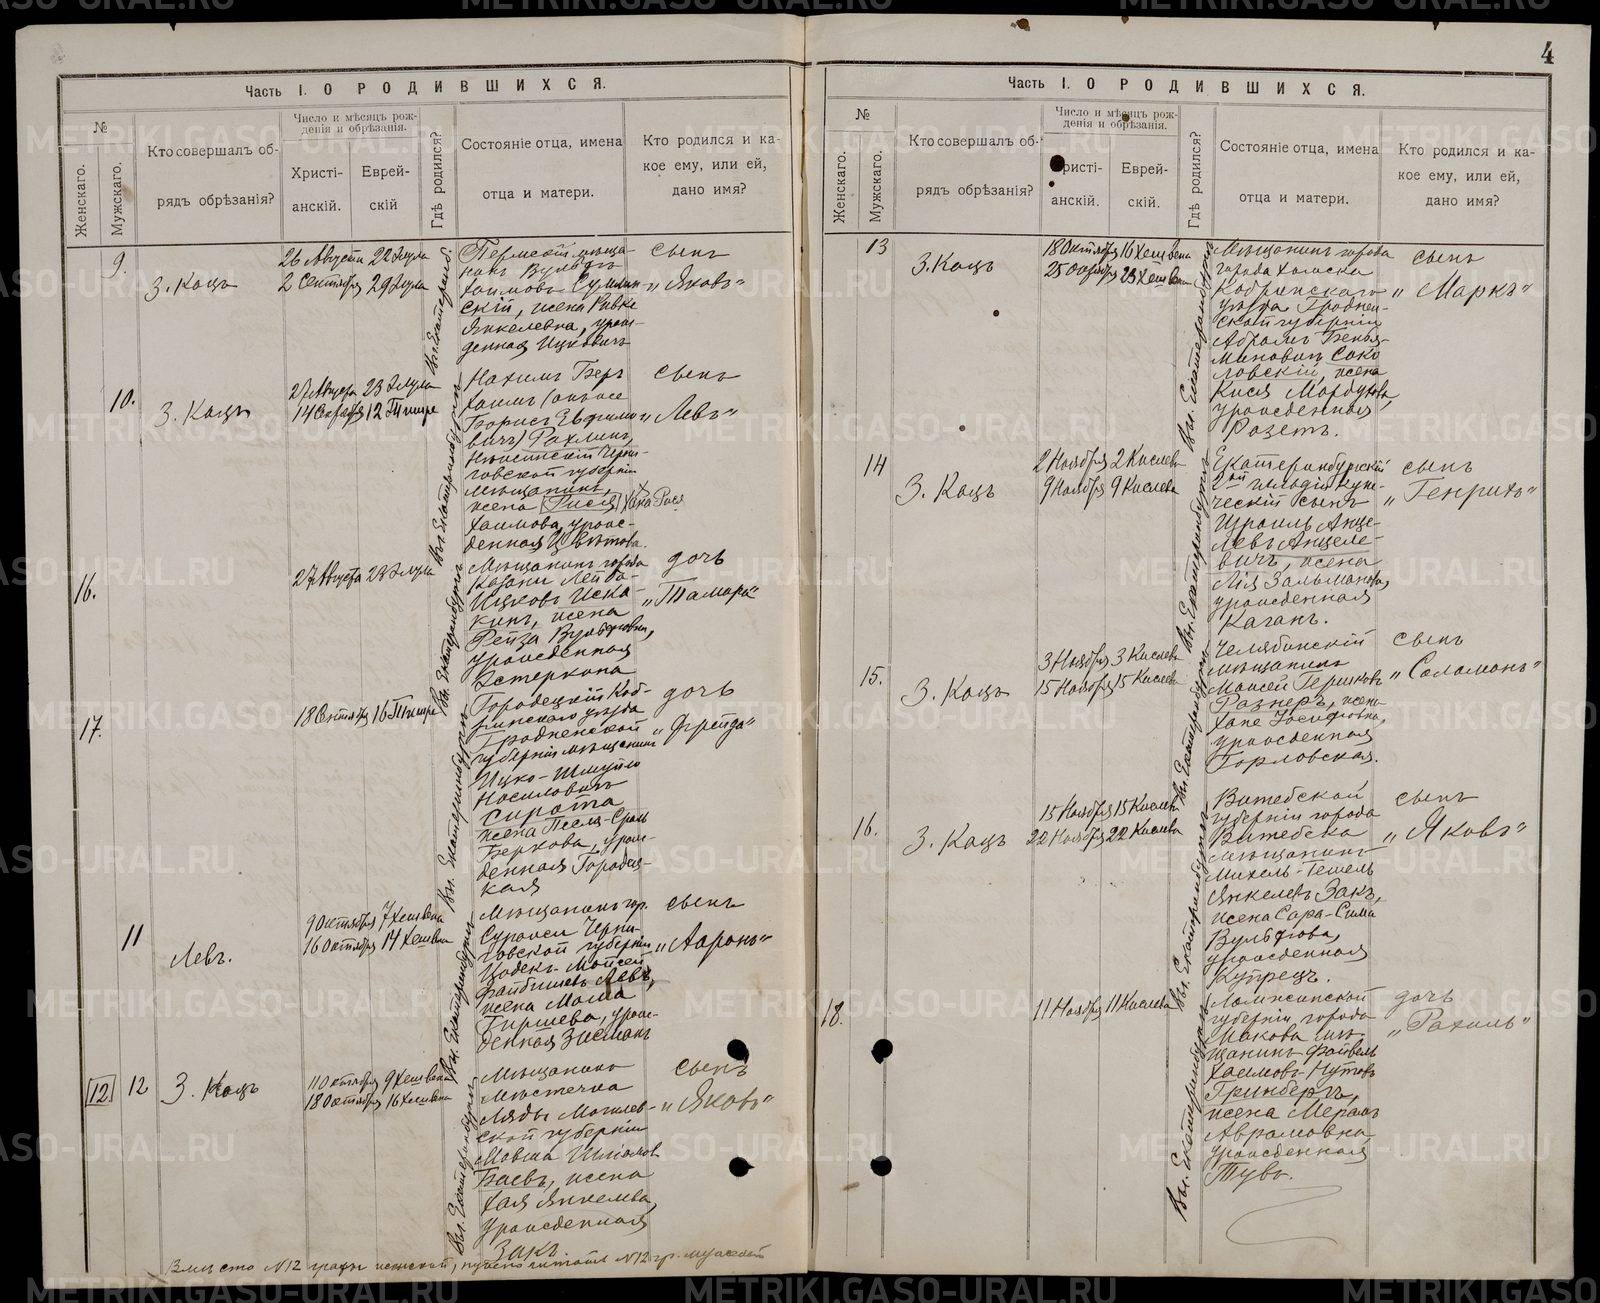 4
Часть I. О РОДИВШИХСЯ.
№
Женскаго.
Мужскаго.
Кто совершалъ об-
рядъ обрѣзанія?
Число и мѣсяцъ рож-
денія и обрѣзанія.
Христі-
анскій.
Еврей-
скій
Гдѣ родился?
Состояніе отца, имена
отца и матери.
Кто родился и ка-
кое ему, или ей,
дано имя?
9.
З. Кацъ
26 Августа 22 Элула
2 Сентября 29 Элула
Въ г. Екатеринб.
Пермскій мѣща-
нинъ Вульфъ
Хаимовъ
скій, жена Ривке
Янкелевна, урож-
денная Ицковичъ
сынъ
„Яковъ“
10.
З. Кацъ
27 Августа 23 Элула
14 Октября 12 Тишре
Въ г. Екатеринбургѣ
Нахимъ Беръ
Хаимъ (онъ же
Борисъ Эфримо-
вичъ) Рахлинъ,
Нѣжинскій Черни-
говской губерніи
мѣщанинъ,
жена Рися Хана Рися
Хаимова, урож-
денная Цвѣтова.
сынъ
„Левъ“
16.
27 Августа 23 Элула
Въ г. Екатеринбургѣ
Мѣщанинъ города
Казани Лейба-
Ицковъ Иска-
кинъ, жена
Рейза Вульфовна,
урожденная
Эстеркина
дочь
„Тамара“
17.
18 Сентября 16 Тишре
Въ г. Екатеринбургѣ
Городецкій Коб-
ринскаго уѣзда
Гродненской
губерніи мѣщанинъ
Ицко-Шмуйло
Носиловичъ
Сирота
жена Песля-Сроль
Беркова, урож-
денная Городец-
кая
дочь
„Фрейда“
11
Левъ.
9 Октября 7 Хешвена
16 Октября 14 Хешвена
Въ г. Екатеринбургѣ
Мѣщанинъ гор.
Суража Черни-
говской губерніи
Цодекъ-Мойсей
Файбишевъ Левъ,
жена Маша
Гиршева, урож-
денная Зисманъ
сынъ
„Ааронъ“
12 12
З. Кацъ
11 Октября 9 Хешвена
18 Октября 16 Хешвена
Въ г. Екатеринбургѣ
Мѣщанинъ
мѣстечка
Ляды Могилев-
ской губерніи
Мовша Шліомов
Баевъ, жена
Хая Янкелева,
урожденная
Закъ.
сынъ
„Яковъ“
Вмѣсто №12 графы женской, нужно читать №12 гр. мужской
Часть I. О РОДИВШИХСЯ.
№
Женскаго.
Мужскаго.
Кто совершалъ об-
рядъ обрѣзанія?
Число и мѣсяцъ рож-
денія и обрѣзанія.
Христі-
анскій.
Еврей-
скій.
Гдѣ родился?
Состояніе отца, имена
отца и матери.
Кто родился и ка-
кое ему, или ей,
дано имя?
13
З. Кацъ
18 Октября 16 Хешвена
25 Октября 23 Хешвена
Въ г. Екатеринбургѣ
Мѣщанинъ города
города Хомска
Кобринскаго
уѣзда Гроднен-
ской губерніи
Абрамъ Бенья-
миновичъ Соко-
ловскій, жена
Кися Мордухова,
урожденная
Розетъ.
сынъ
„Маркъ“
14
З. Кацъ
2 Ноября 2 Кислева
9 Ноября 9 Кислева
Въ г. Екатеринбургѣ
Екатеринбургскій
2ой гильдіи купе-
ческій сынъ
Израиль Анце-
левъ Анцеле-
вичъ, жена
Лія Залманова,
урожденная
Каганъ.
сынъ
„Генрихъ“
15.
З. Кацъ
3 Ноября 3 Кислева
15 Ноября 15 Кислева
Въ г. Екатеринбургѣ
Челябинскій
мѣщанинъ
Моисей Гершковъ
Разнеръ, жена
Хане Іосифовна,
урожденная
Горловская.
сынъ
„Соломонъ“
16.
З. Кацъ
15 Ноября 15 Кислева
22 Ноября 22 Кислева
Въ г. Екатеринбургѣ
Витебской
губерніи города
Витебска
мѣщанинъ
Михель-Гешель
Янкелевъ Закъ,
жена Сара-Сима
Вульфова,
урожденная
Купрецъ.
сынъ
„Яковъ“
18.
11 Ноября 11 Кислева
Въ г. Екатеринбургѣ
Ломжинской
губерніи города
Макова мѣ-
щанинъ Файвель
Хаимовъ-Нутовъ
Гринбергъ,
жена Мериамъ
Аврамовна
урожденная
Тувъ.
дочь
„Рахиль“
METRIKI.GASO-URAL.RU